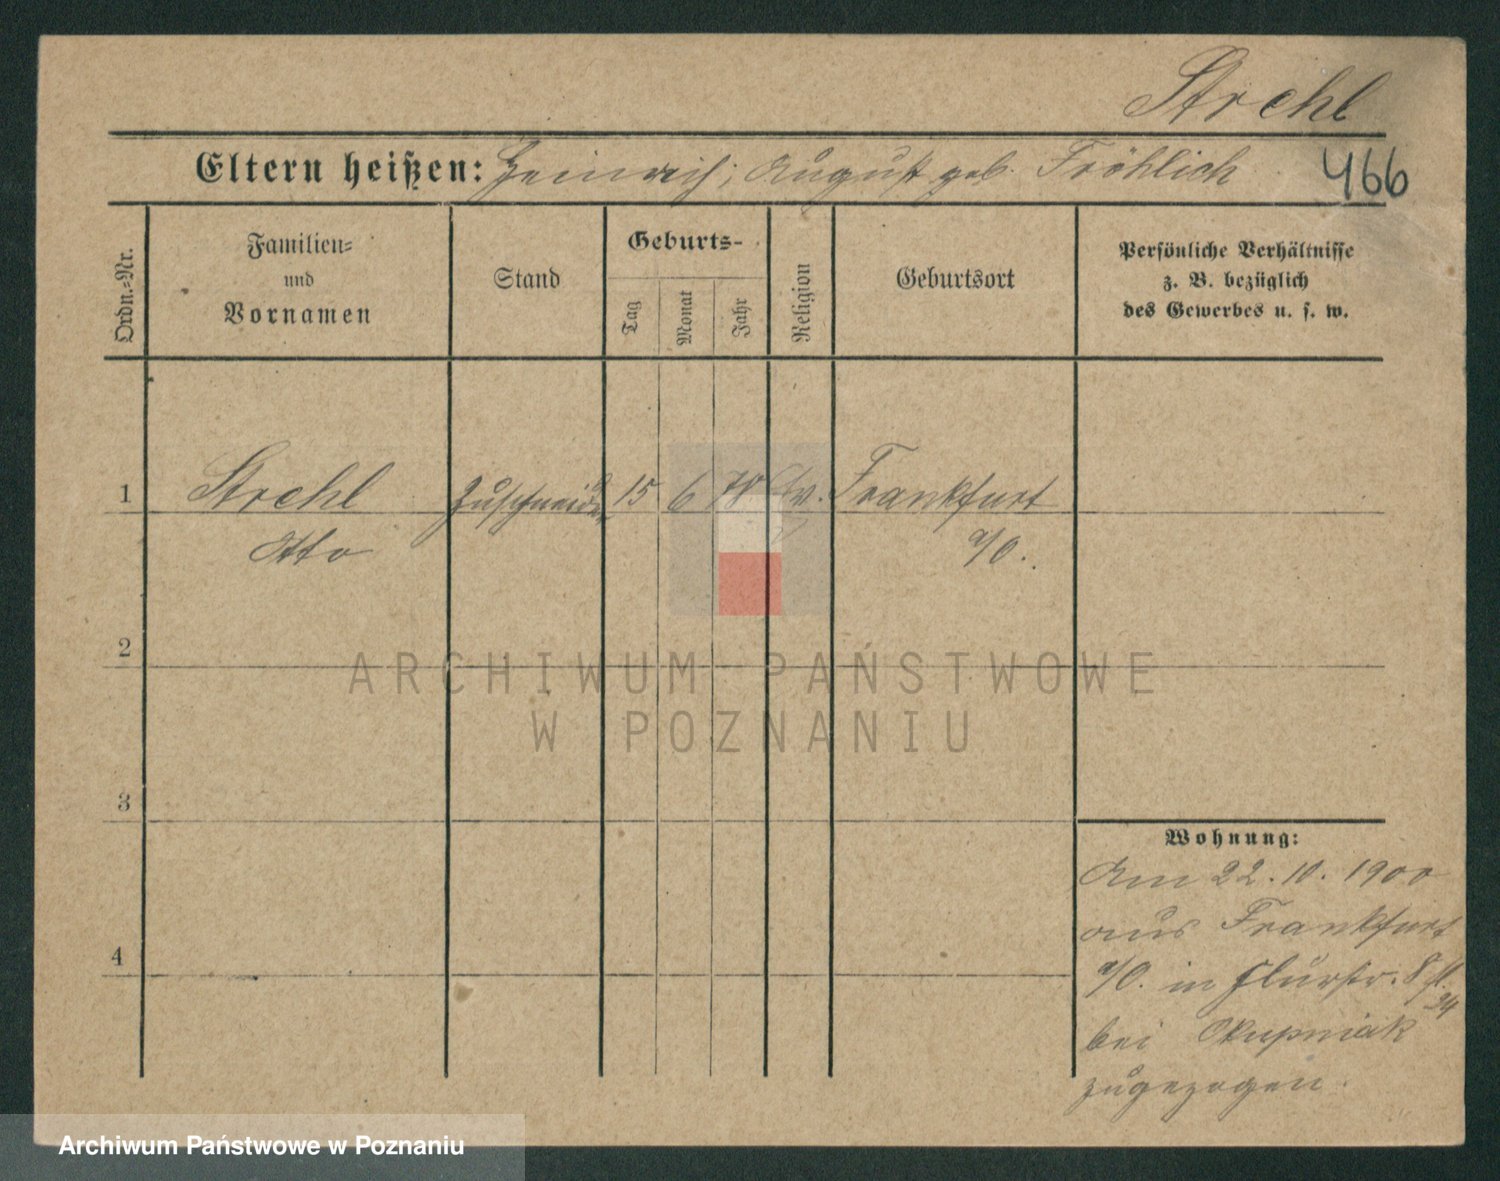 Strehl
Eltern heißen: Heinrich, August geb. Fröhlich
466
Ordn.-Nr.
Familien-
und
Vornamen
Stand
Geburts-
Tag
Monat
Jahr
Religion
Geburtsort
Persönliche Verhältnisse
z. B. bezüglich
des Gewerbes u. s. w.
1 Strehl Zuschneider 15 6 78 Ev. Frankfurt
Otto a/O.
2
ARCHIWUM PAŃSTWOWE
W POZNANIU
3
Wohnung:
Am 22. 10. 1900
aus Frankfurt
4
a/O. in Flurstr. 8
bei Skupniak
zugezogen.
Archiwum Państwowe w Poznaniu